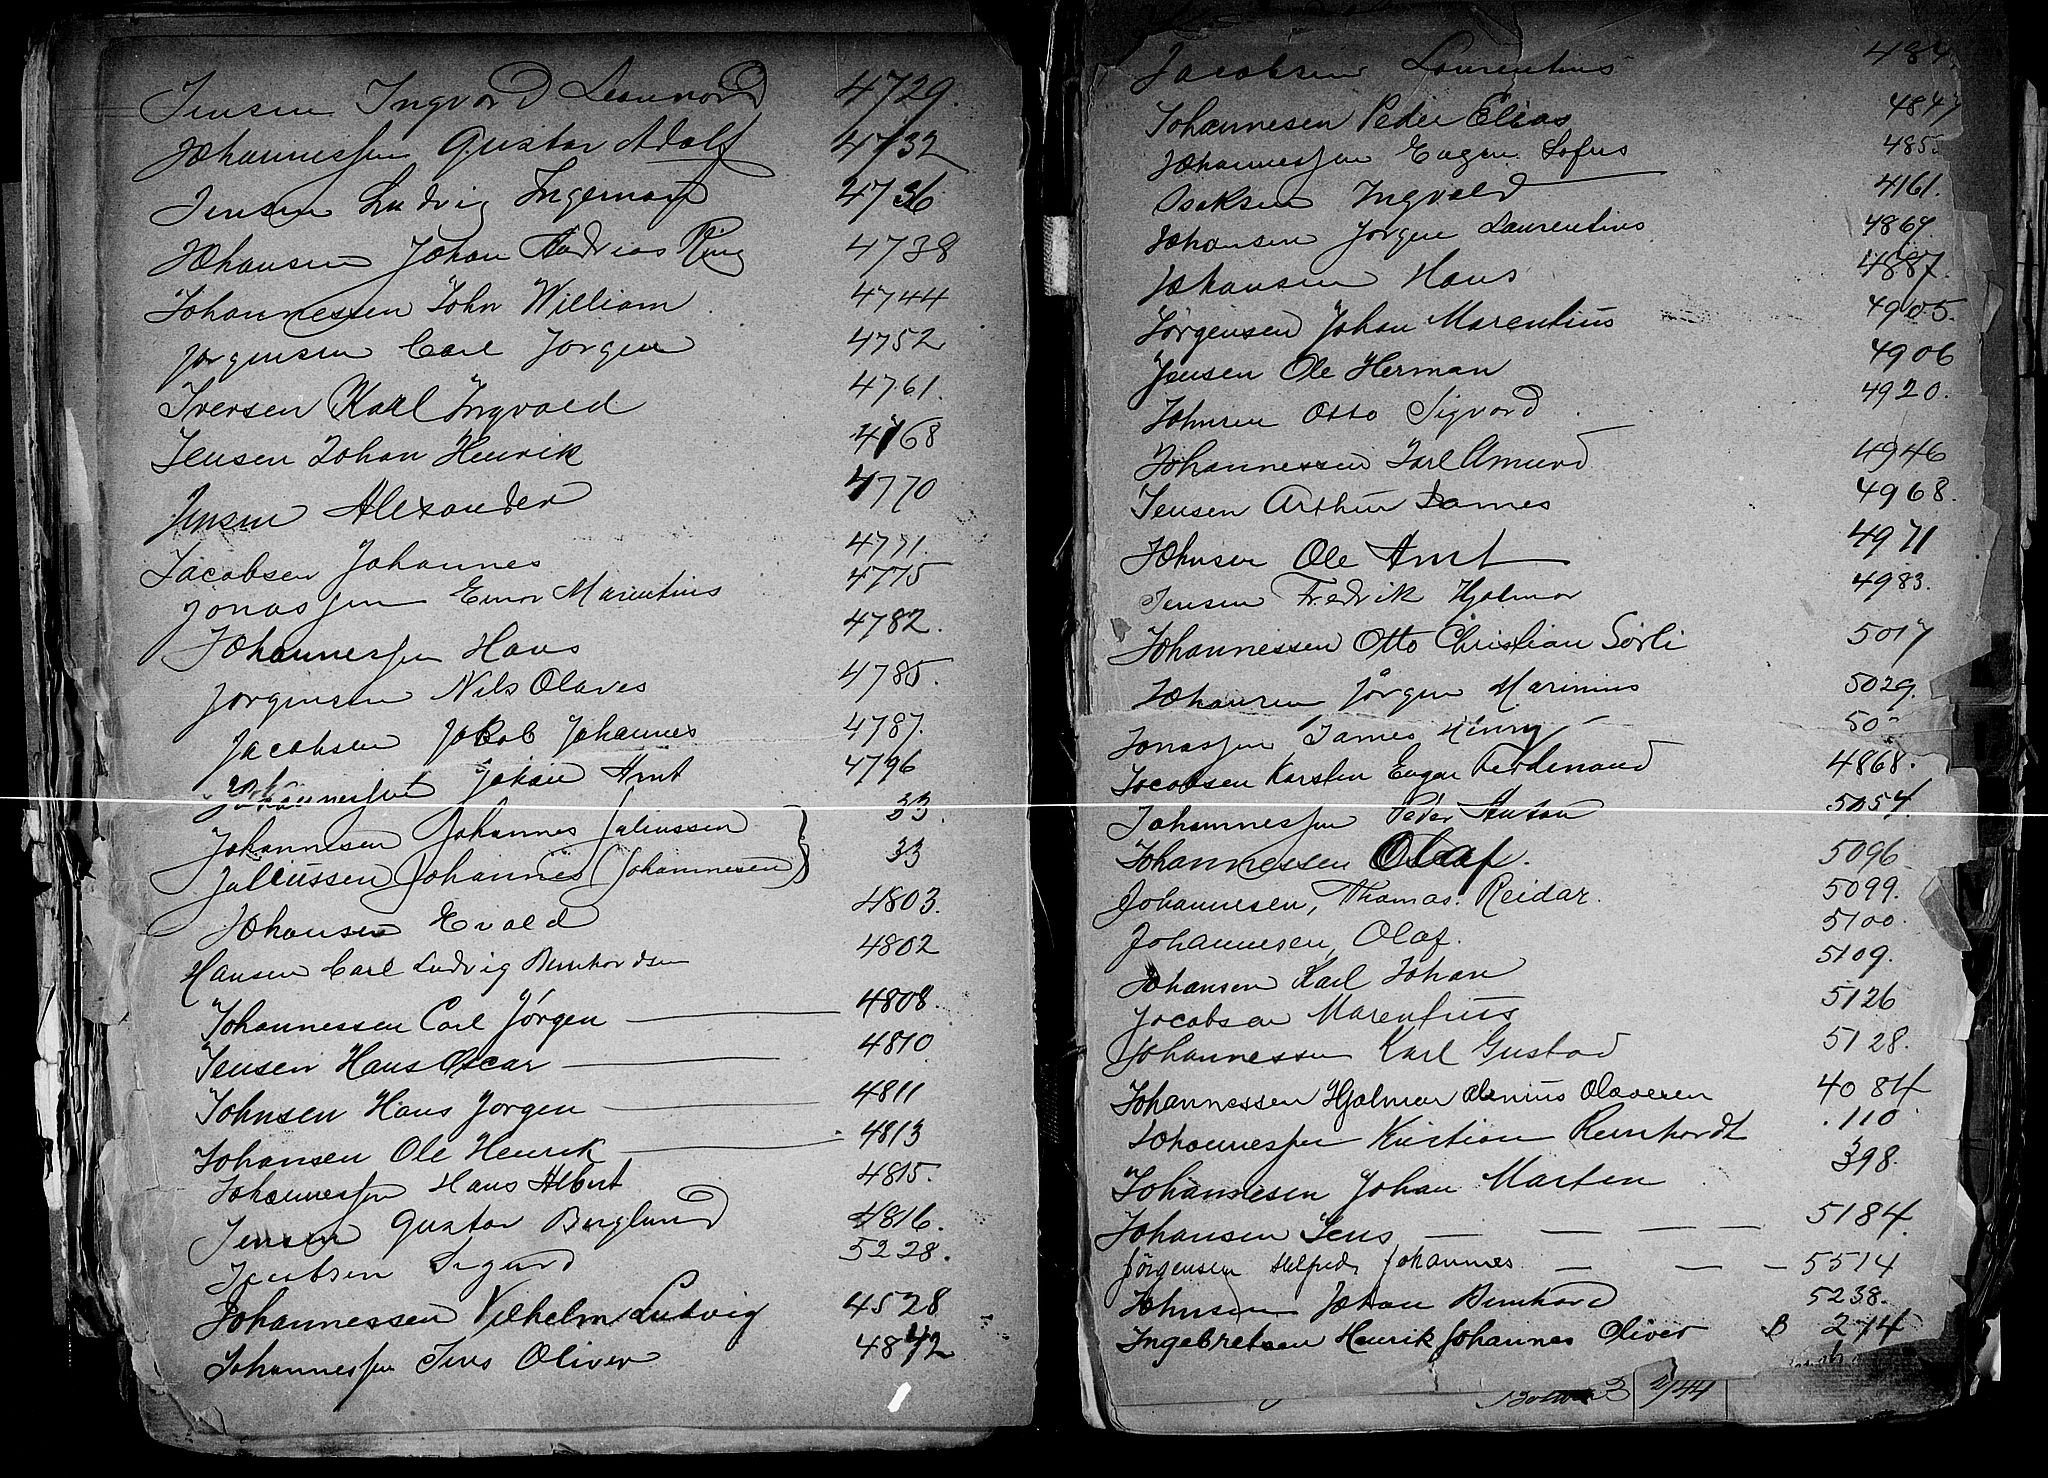 Jensen Ingvard Leonnard 4729.
Johannessen Gustav Adolf 4732
Jensen Ludvig Ingemar 4736
Johansen Johan Andreas Ring 4738
Johannessen John William 4744
Jørgensen Carl Jørgen 4752
Iversen Karl Ingvald 4761.
Jensen Johan Henrik 4768
Jensen Alexander 4770
Jacobsen Johannes 4771.
Jonassen Einar Marentius 4775
Johannessen Hans 4782.
Jørgensen Nils Olaves 4785.
Jacobsen Jakob Johannes 4787.
Johannessen Johan Arnt 4796
Johannesen Johannes Juliussen 33.
Juliussen Johannes (Johannesen) 33
Johansen Evald 4803.
Hansen Carl Ludvig Bernhardsen 4802
Johannessen Carl Jörgen 4808.
Jensen Hans Oscar 4810
Johnsen Hans Jörgen 4811
Johansen Ole Henrik 4813
Johannessen Hans Albert 4815.
Jensen Gustav Berglund 4816.
Jacobsen Sigurd 5228.
Johannessen Vilhelm Ludvig 4528
Johannessen Jens Oliver 4842
Jacobsen Laurentius
Johannesen Peder Elias 4847
Johannessen Eugen Sofus 485
Isaksen Ingvald 4161.
Johansen Jørgen Laurentius 4867.
Johansen Hans 4887.
Jørgensen Johan Marentius 4905.
Jensen Ole Herman 4906
Johnsen Otto Sigvard 4920.
Johannessen Karl Amund 4946
Jensen Arthur James 4968.
Johnsen Ole Arnt 4971
Jensen Fredrik Hjalmar 4983.
Johannessen Otto Christian Sörli 5017
Johansen Jørgen Marinius 5029.
Jonassen James Henry 50
Jacobsen Karsten Edgar Ferdinand 4868.
Johannessen Peder Anton 5054.
Johannessen Olaf. 5096
Johannesen, Thomas Reidar. 5099.
Johannesen, Olaf. 5100.
Johansen Karl Johan 5109.
Jacobsen Marentius 5126
Johannessen Karl Gustad 5128.
Johannessen Hjalmar Olenius Olavesen 4084
Johannessen Kristian Reinhardt .110
Johannesen Johan Marten 398.
Johansen Jens — — — — 5184.
Jørgensen Halfred Johannes — — — 5514
Johnsen Johan Bernhard 5238.
Ingebretsen Henrik Johannes Oliver B 274.
2/44